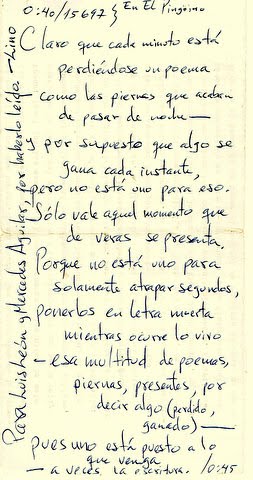 0:40/15697} En El Pingüino
Claro que cada minuto está
perdiéndose un poema
como las piernas que acaban
de pasar de noche —
por supuesto que algo se
gana cada instante,
pero no está uno para eso.
Sólo vale aquel momento que
de veras se presenta.
Porque no está uno para
solamente atrapar segundos,
ponerlos en letra muerta
mientras ocurre lo vivo
— esa multitud de poemas,
piernas, presentes, por
decir algo (perdido,
ganado) —
pues uno está puesto a lo
que venga
— a veces, la escritura. /0:45
Para Luis León y Mercedes Aguilar, por haberlo leído. — Lino